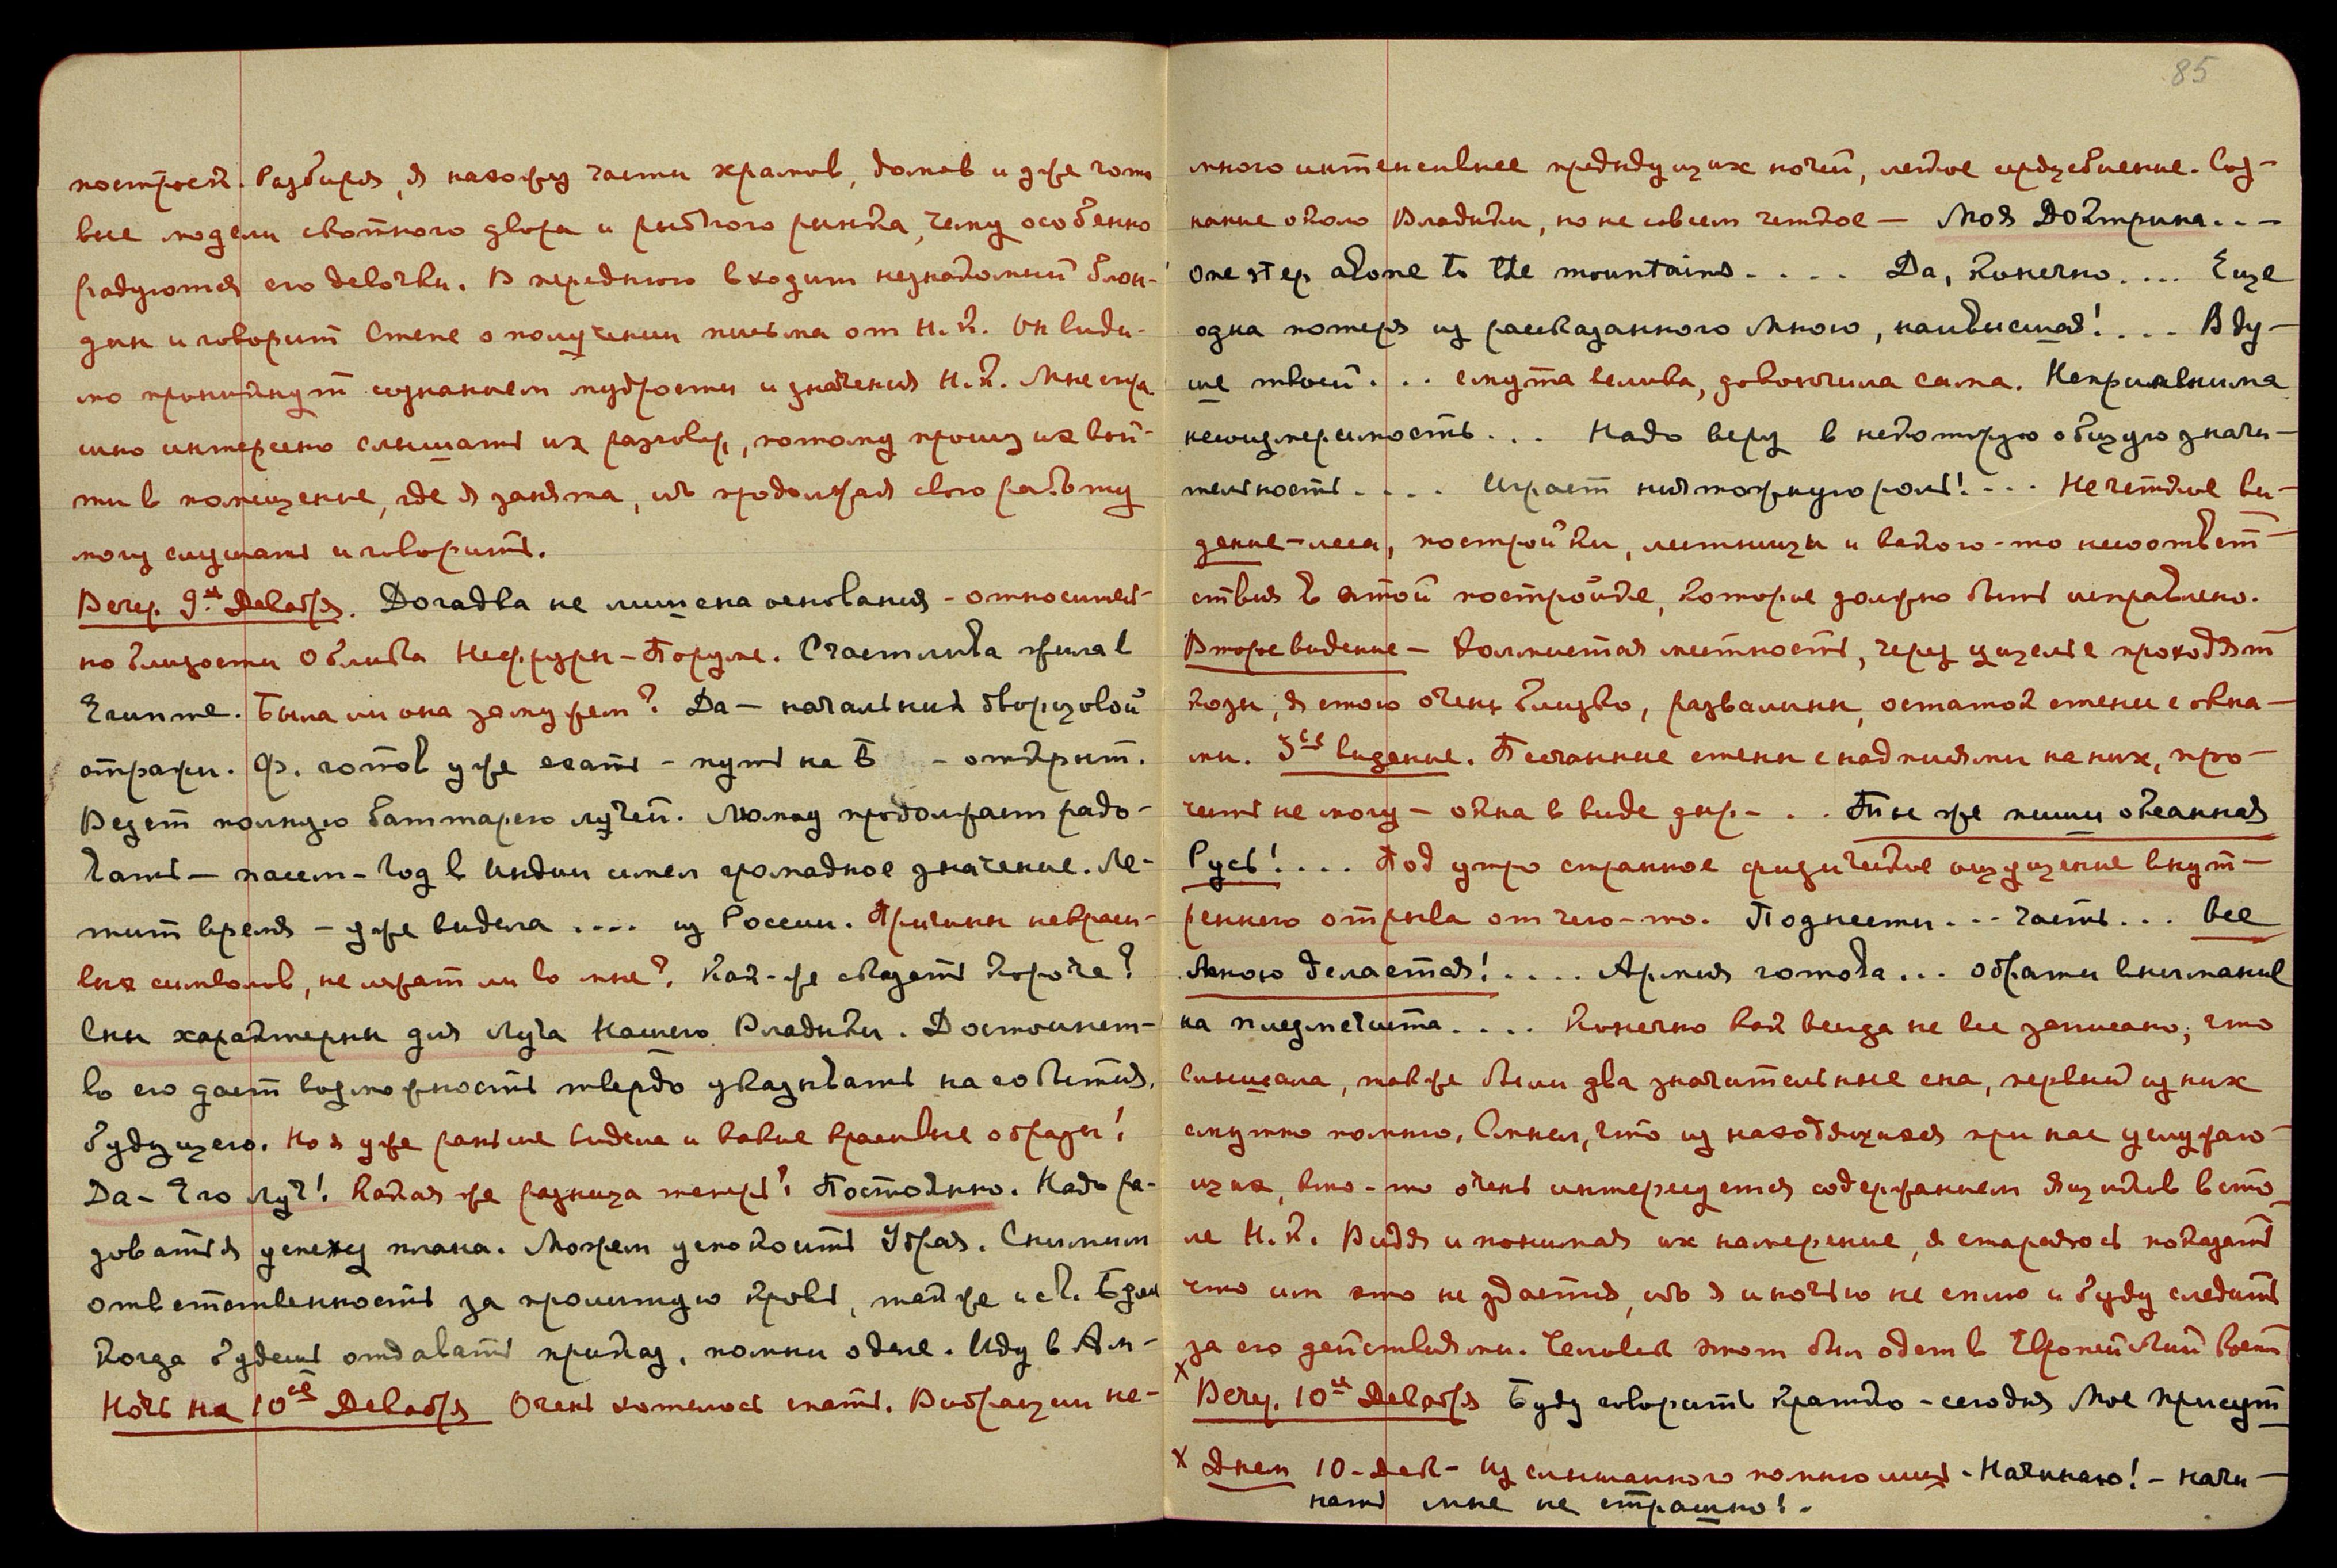 построек. Разбирая, я нахожу части храмов, домов и уже гото-
вые модели скотного двора и рыбного рынка, чему особенно
радуются его девочки. В переднюю входит незнакомый блон-
дин и говорит Степе о получении письма от Н.К. Он види-
мо проникнут сознанием мудрости и значения Н.К. Мне стра
шно интересно слышать их разговор, потому прошу их вой-
ти в помещение, где я занята, ибо продолжая свою работу
могу слушать и говорить.
Вечер. 9ое Декабря. Догадка не лишена основания - относитель-
но близости облика Неффруры - Поруме. Счастлива жила в
Египте. Была ли она замужем? Да - начальник дворцовой
стражи. Ф. готов уже ехать - путь на Б - открыт.
Ведет полную баттарею лучей. Люмоу продолжает радо-
вать - пасем - Год в Индии имел громадное значение. Ле-
тит время - уже видела .... из России. Причины некраси-
вых символов, не лежат ли во мне? Как-же сказать короче?
Сны характерны для Луча Нашего Владыки. Достоинст-
во его дает возможность твердо указывать на события
будущего. Но я уже раньше видела и какие красивые образы!
Да - Его Луч! Какая же разница теперь? Постоянно. Надо ра-
доваться успеху плана. Можем успокоить Удрая. Снимем
ответственность за пролитую кровь, также и св.
Когда будешь отдавать приказ, помни одно. Иду в Ам-
Ночь на 10ое Декабря Очень хотелось спать. Вибрации не-
85
много интенсивнее предыдущих ночей, легкое сердцебиение. Соз-
нание около Владыки, но не совсем четкое - Моя Доктрина...-
One step alone to the mountains.... Да, конечно.... Еще
одна потеря из рассказанного Мною, наивысшая!... В ду-
ше твоей... смута велика, доканчила сама. Неприменима
несоизмеримость... Надо веру в некоторую общую значи-
тельность.... Играет ничтожную роль!... Нечеткое ви-
дение - леса, постройки, лестницы и какого-то несоответ-
ствия в этой постройке, которое должно быть исправлено.
Второе видение - Холмистая местность, через ущелье проходят
козы, я стою очень близко, развалины, остаток стены с окна-
ми. 3ье видение. Песчанные стены с надписями на них, про-
честь не могу - окна в виде дыр - .. Ты же пиши океанная
Русь!.... Под утро странное физическое ощущение внут-
реннего отрыва от чего-то. Поднести... часть... Все
Мною делается!.... Армия готова... обрати внимание
на .... Конечно как всегда не все записано, что
слышала, также были два значительные сна, первый из них
смутно помню. Смысл, что из находящихся при нас служаю-
щих, кто-то очень интересуется содержанием ящиков в сто
ле Н.К. Видя и понимая их намерение, я стараюсь показать
что им это не удастся, ибо я и ночью не сплю и буду следить
за его действиями. Человек этот был одет в Европейский кост
x Вечер. 10ое Декабря Буду говорить кратко - сегодня Мое присут
x Днем 10-Дек- Из слышанного помню лишь - Начинаю! - начи-
нать мне не страшно!.